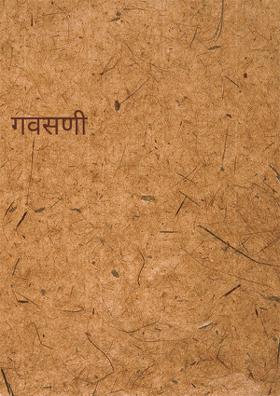 गवसणी